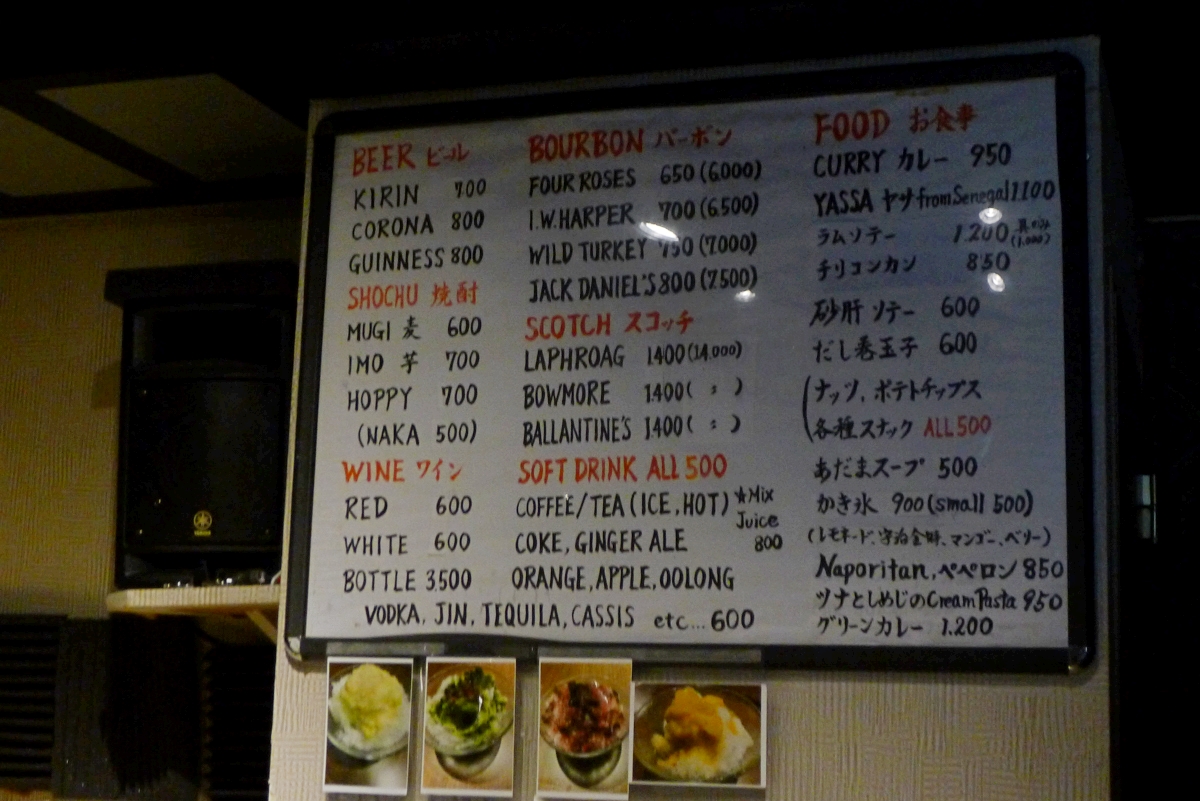 BEER ビール
KIRIN 700
CORONA 800
GUINNESS 800
SHOCHU 焼酎
MUGI 麦 600
IMO 芋 700
HOPPY 700
(NAKA 500)
WINE ワイン
RED 600
WHITE 600
BOTTLE 3.500
VODKA, JIN, TEQUILA, CASSIS etc... 600
BOURBON バーボン
FOUR ROSES 650 (6.000)
I.W.HARPER 700 (6.500)
WILD TURKEY 750 (7.000)
JACK DANIEL'S 800 (7.500)
SCOTCH スコッチ
LAPHROAG 1.400 (14.000)
BOWMORE 1.400 ( 〃 )
BALLANTINE'S 1.400 ( 〃 )
SOFT DRINK ALL 500
COFFEE/TEA (ICE, HOT)
COKE, GINGER ALE
ORANGE, APPLE, OOLONG
★Mix
Juice
800
FOOD お食事
CURRY カレー 950
YASSA ヤサ from Senegal 1.100
ラムソテー 1.200 (1.000)
チリコンカン 850
砂肝 ソテー 600
だし巻玉子 600
(ナッツ、ポテトチップス
各種スナック ALL 500
あだまスープ 500
かき氷 900 (small 500)
(レモネード、宇治金時、マンゴー、ベリー)
Naporitan, ペペロン 850
ツナとしめじのCream Pasta 950
グリーンカレー 1.200